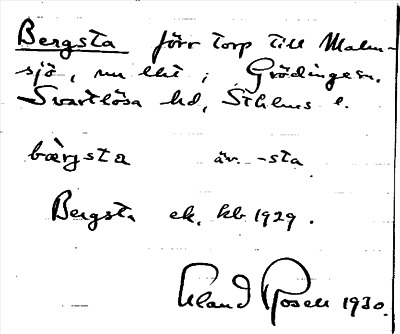 Bergsta förr torp till Malm-
sjö, nu lht i Grödinge sn,
Svartlösa hd, Sthlms l.
bærjsta äv. -sta
Bergsta ek. kb 1929.
Erland Rosell 1930.